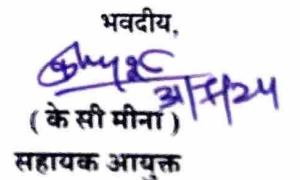 भवदीय,
( के सी मीना )
सहायक आयुक्त